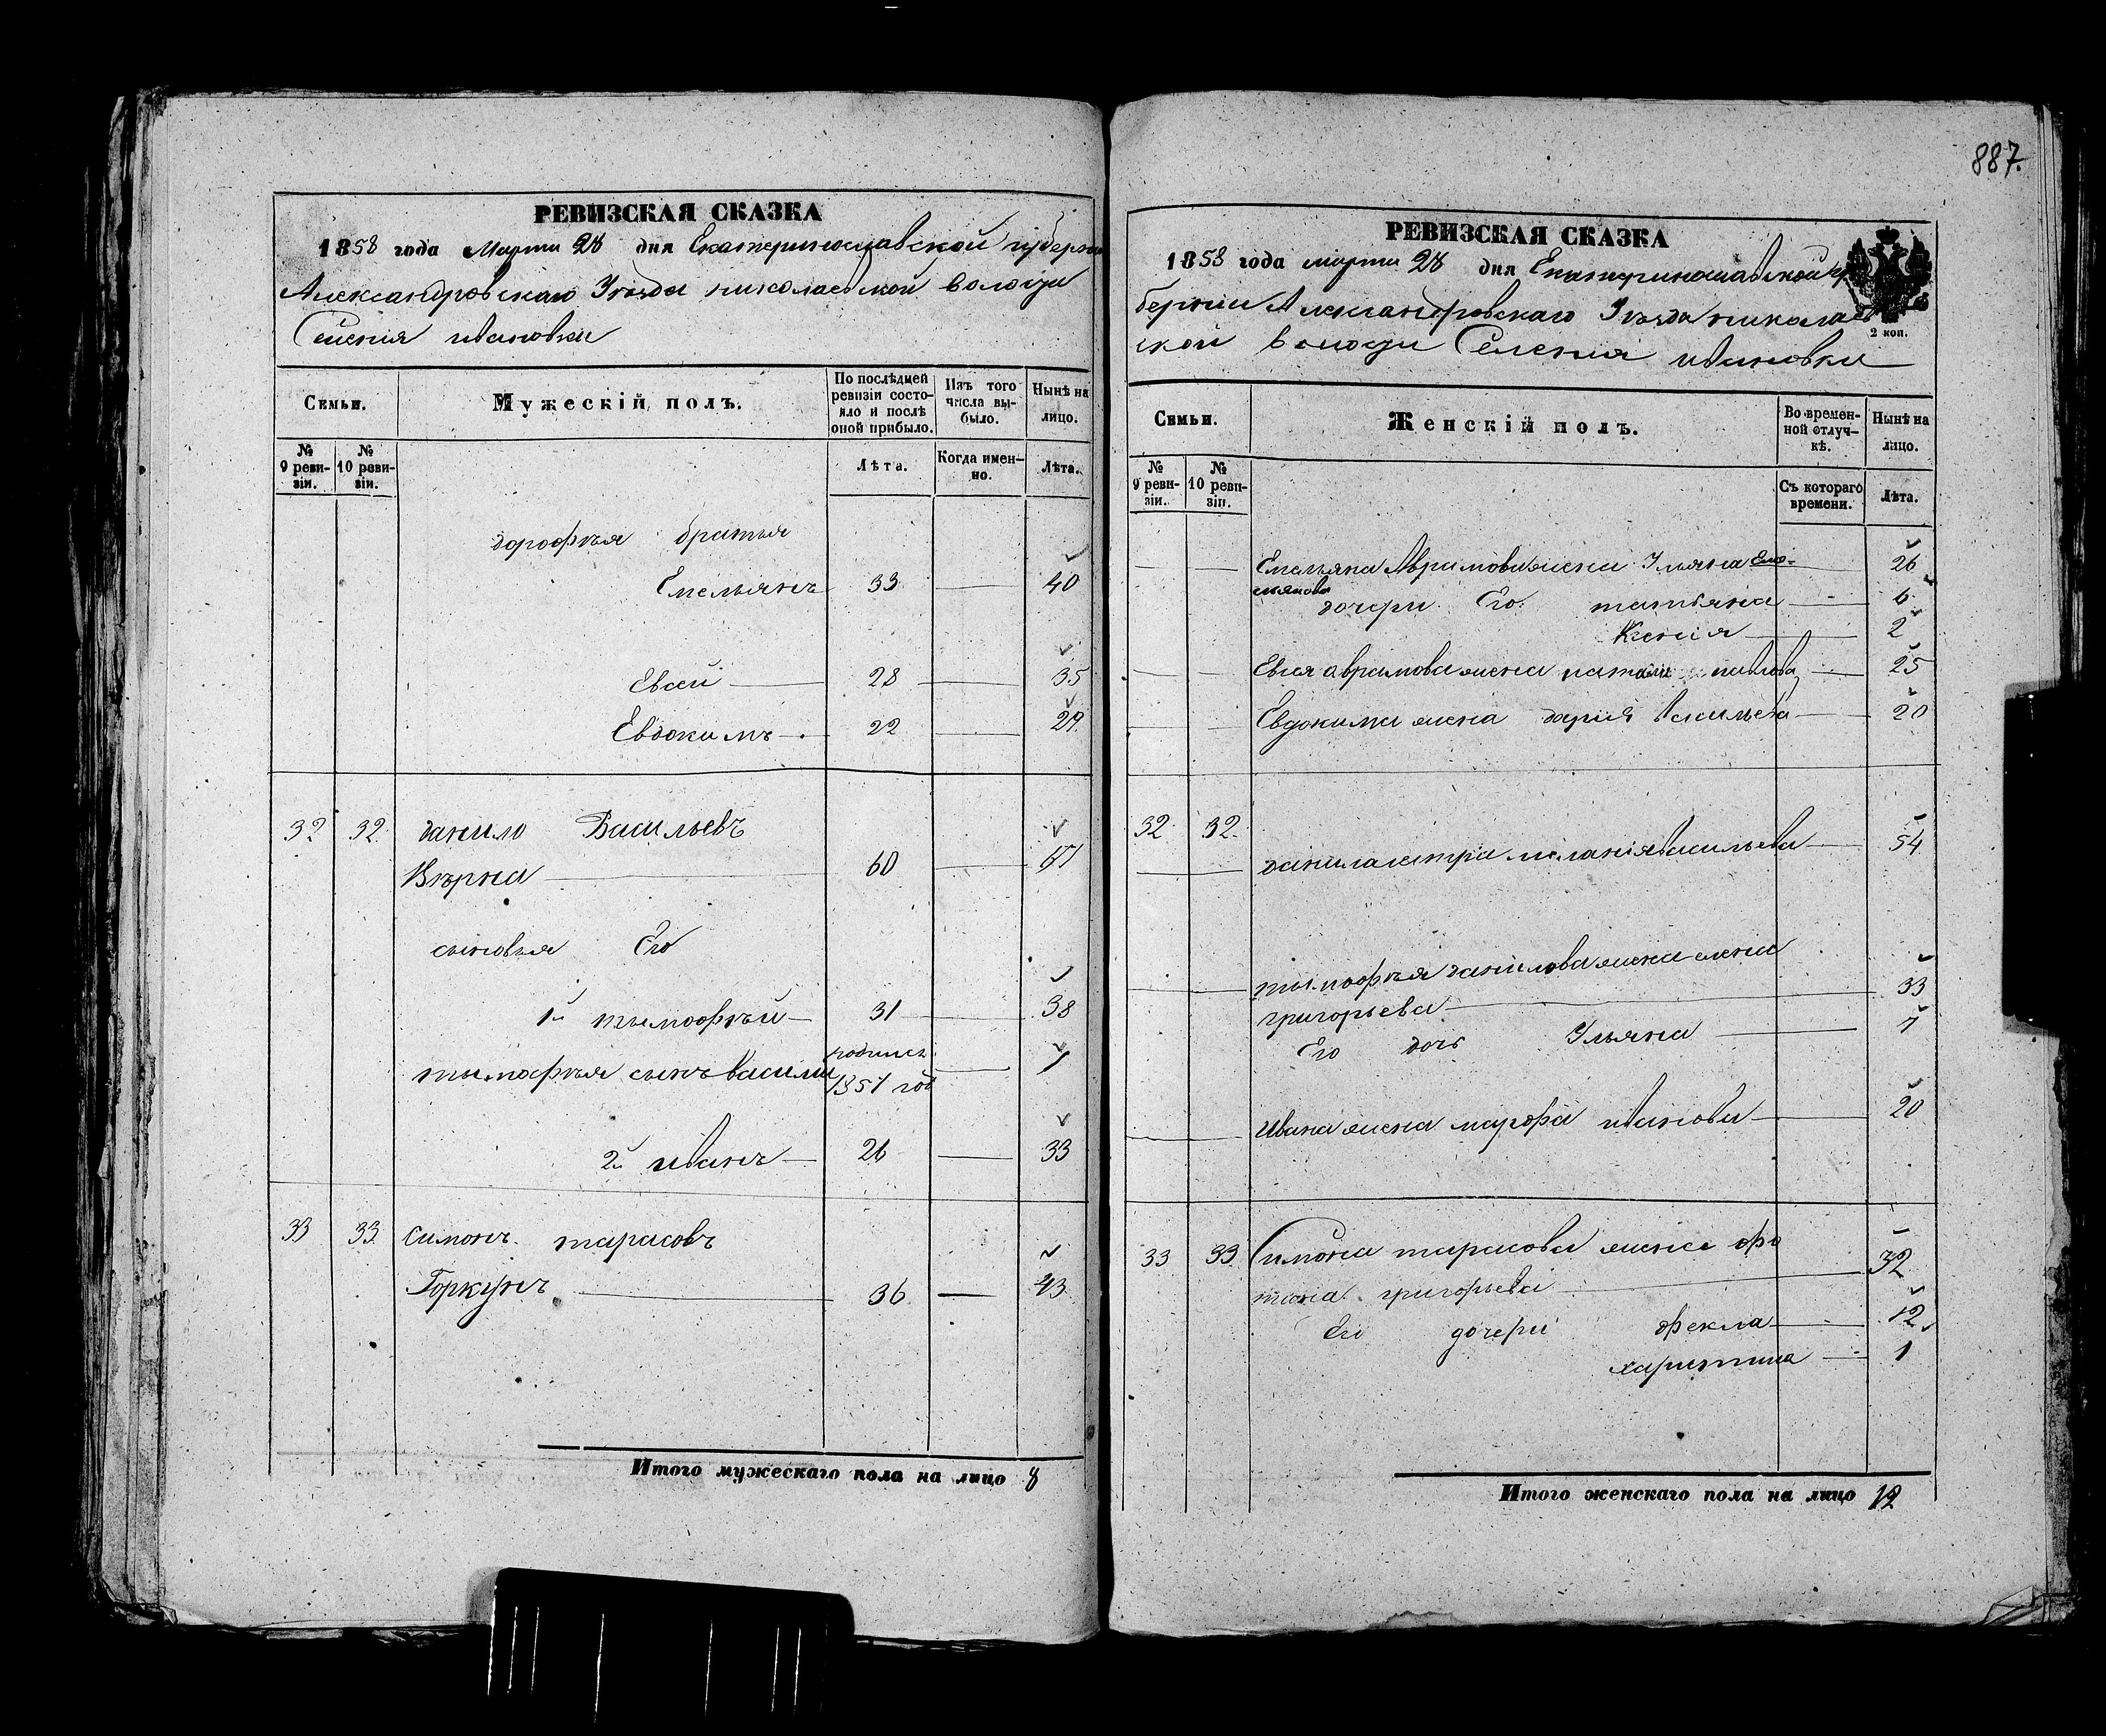 887.
РЕВИЗСКАЯ СКАЗКА
1858 года Марта 28 дня Екатеринославской губернии
Александровскаго Уѣзда николаевской волости
Селения ивановки
Семьи.
Мужескій полъ.
По послѣдней ревизіи состояло и послѣ оной прибыло.
Изъ того числа выбыло.
Нынѣ на лицо.
№ 9 ревизіи.
№ 10 ревизіи.
Лѣта.
Когда именно.
Лѣта.
дорофѣя братья
Емельянъ 33 40
Евсей 28 35
Евдокимъ 22 29
32 32 данило Васильевъ
Вѣрна 60 67
сыновья Его
1й тымофѣй 31 38
тымофѣя сынъ васили родился 1851 год 7
2й иванъ 26 33
33 33 Симонъ тарасовъ
Горкунъ 36 43
Итого мужескаго пола на лицо 8
РЕВИЗСКАЯ СКАЗКА
1858 года марта 28 дня Екатеринославской гу
берніи Александровскаго Уѣзда николаев
ской волости Селения ивановки
2 коп.
Семьи.
Женскій полъ.
Во временной отлучкѣ.
Нынѣ на лицо.
№ 9 ревизіи.
№ 10 ревизіи.
Съ котораго времени.
Лѣта.
Емельяна Аврамова жена Ульяна Еме-
льянова 26
дочери Его татьяна 6
Ксенія 2
Евсея аврамова жена павлова 25
Евдокима жена дарія Васильева 20
32 32 данила сестра меланія васильева 54
тымофѣя данилова жена елена
григорьева 33
Его дочь Ульяна 7
ивана жена марфа иванова 20
33 33 Симона тарасова жена фо
тина григорьева 32
Его дочери фекла 12
харитина 1
Итого женскаго пола на лицо 12